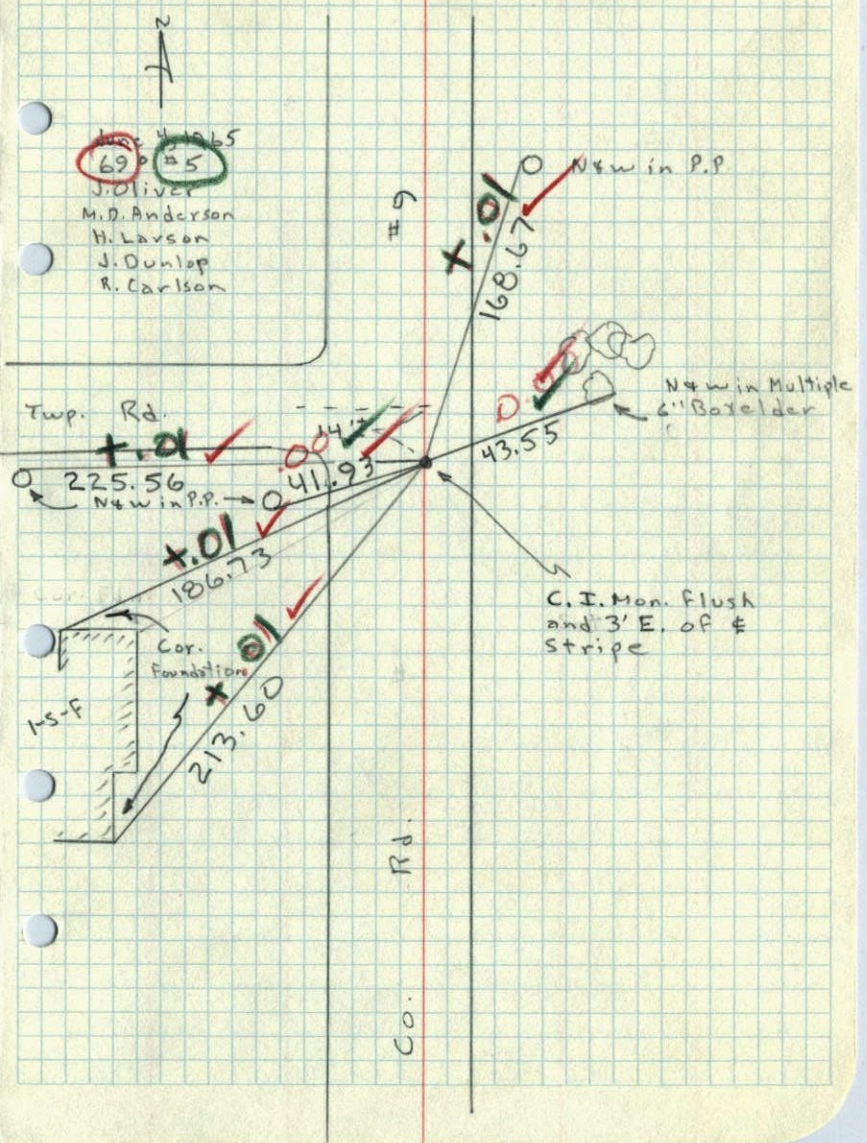 N
June 4, 1965
69° #5
J. Oliver
M.D. Anderson
H. Larson
J. Dunlop
R. Carlson
#9
+.01
168.67
N&W in P.P.
N&W in Multiple
6" Boxelder
0.00
43.55
Twp. Rd.
+.01
225.56
.00
14'±
41.93
N&W in P.P.
+.01
186.73
Cor.
Foundation
+.01
213.60
1-S-F
C.I. Mon. Flush
and 3' E. of ¢
Stripe
Co. Rd.